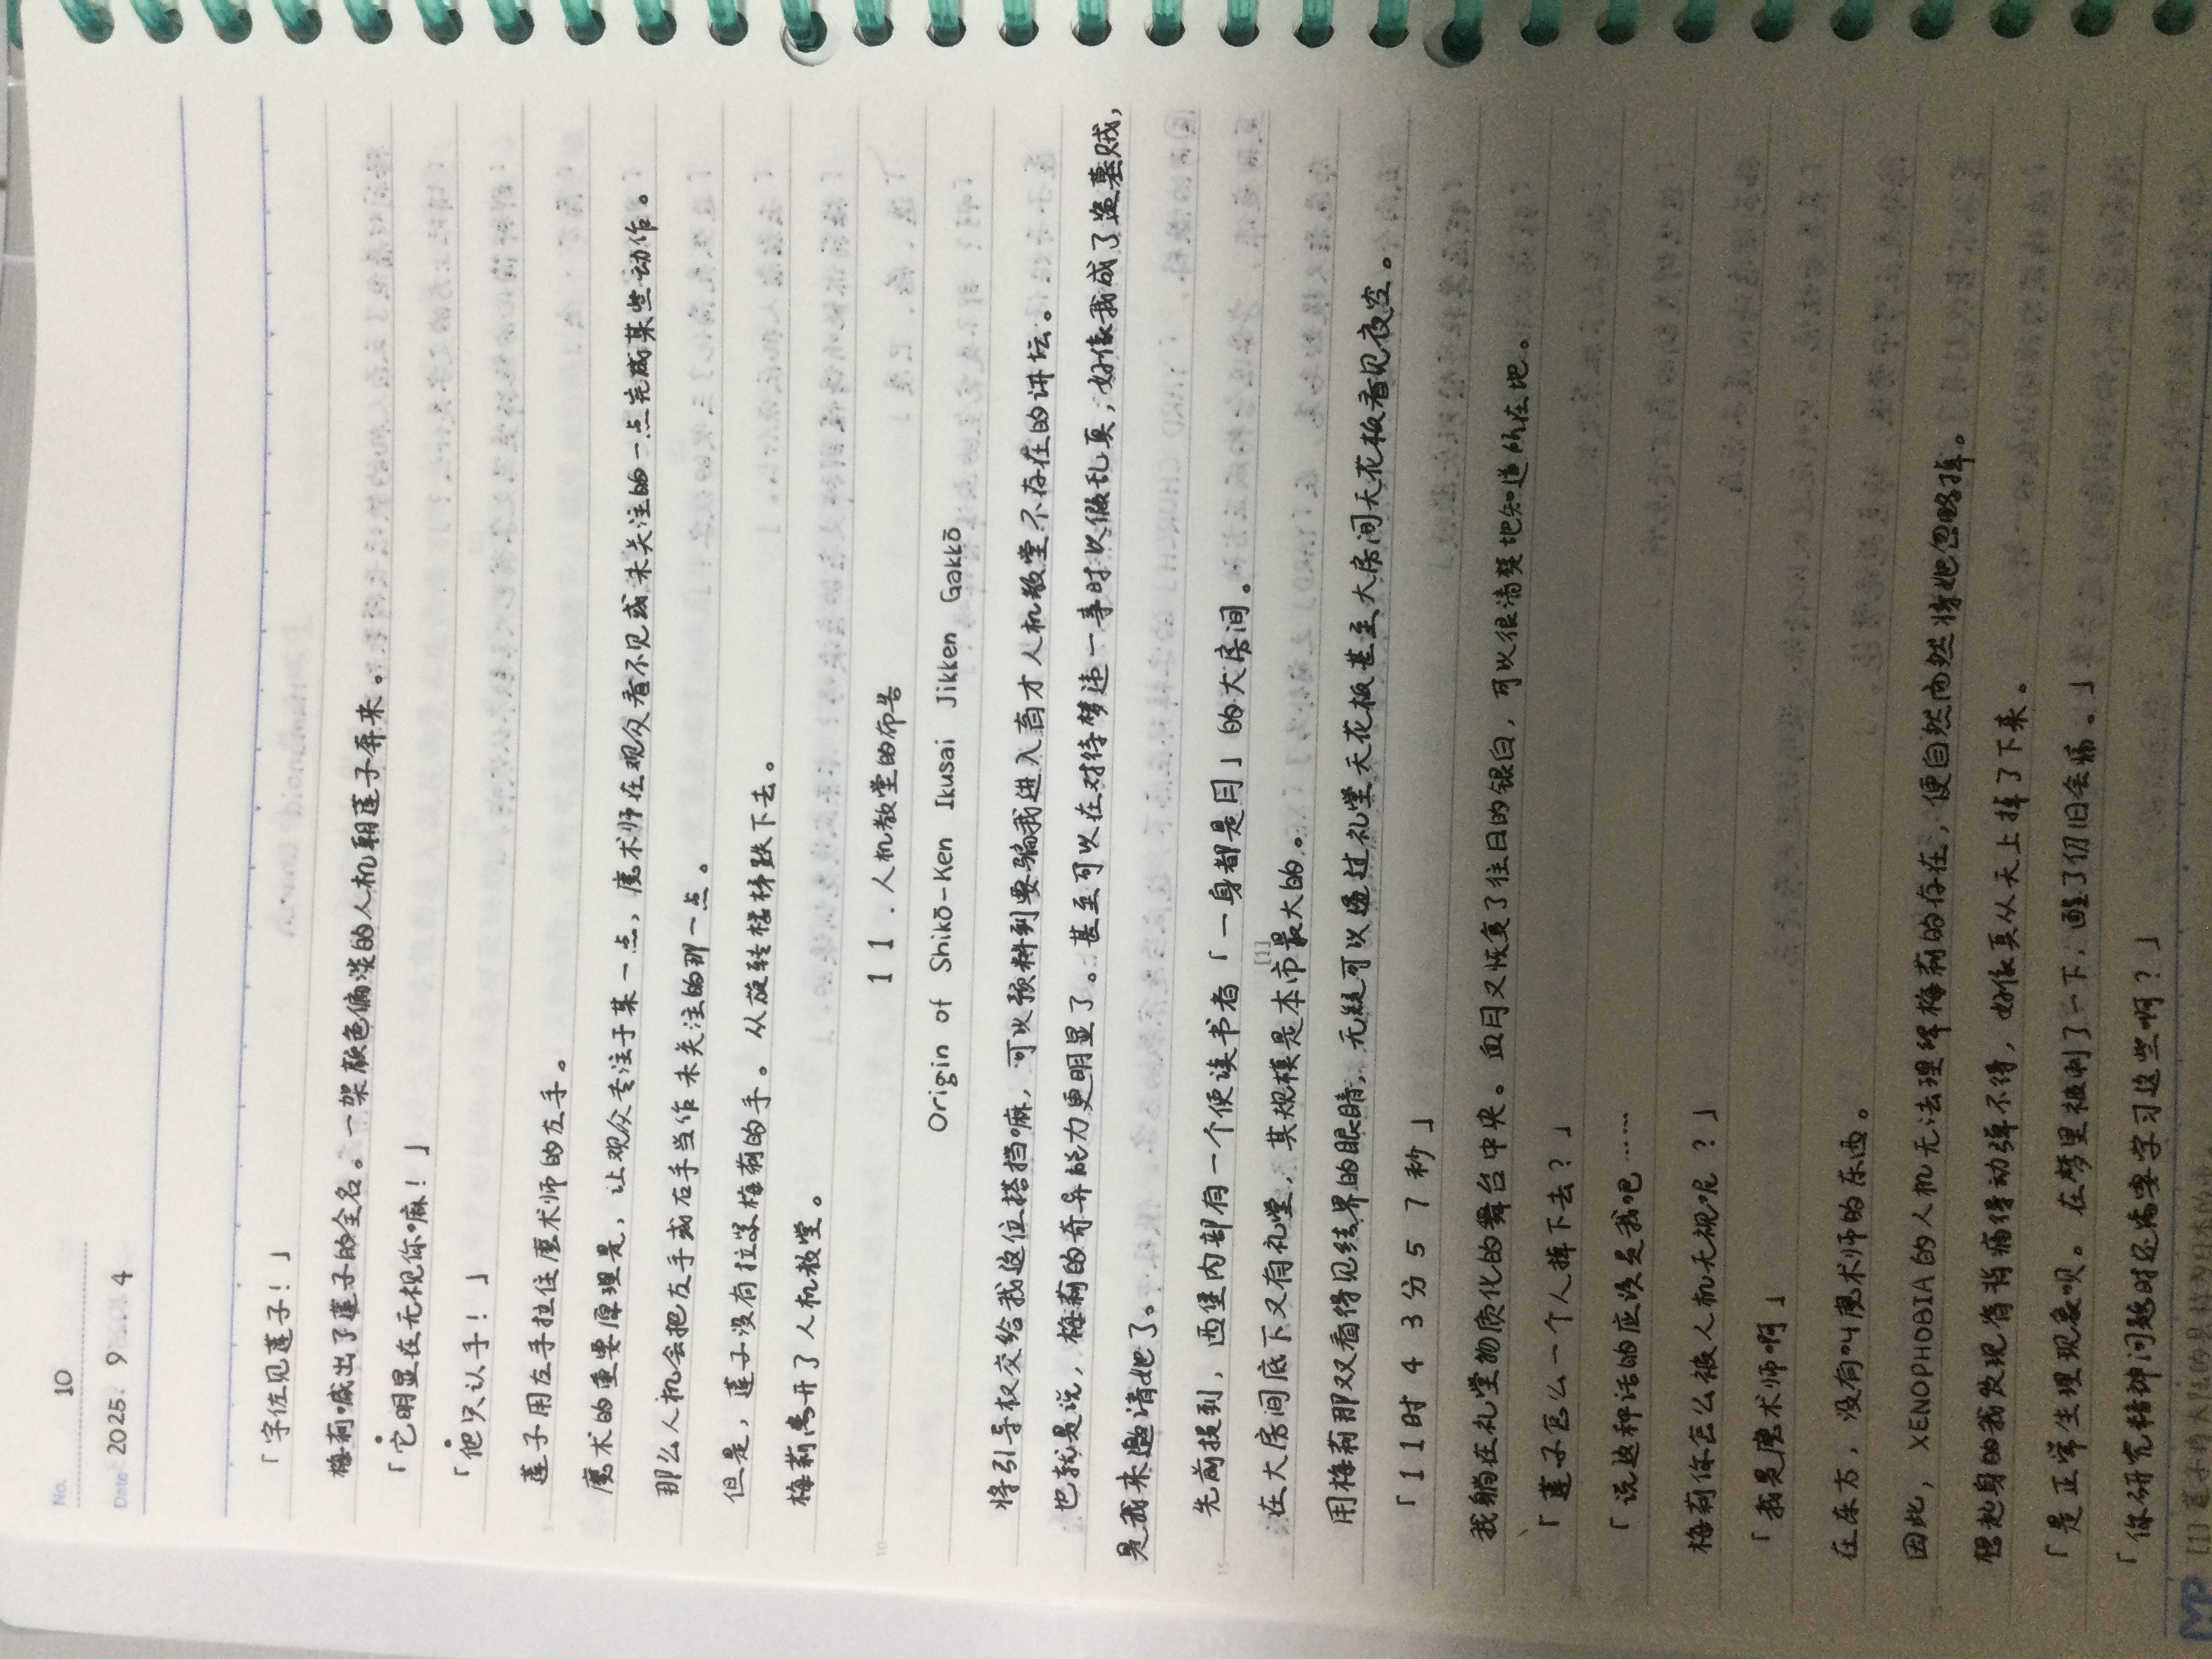 No. 10
Date 2025. 9 . 4
「宇佐见莲子！」
梅莉喊出了莲子的全名。一架颜色偏淡的人机朝莲子奔来。
「它明显在无视你嘛！」
「他只认手！」
莲子用左手拉住魔术师的左手。
魔术的重要原理是，让观众专注于某一点，魔术师在观众看不见或未关注的一点完成某些动作。
那么人机会把左手或右手当作未关注的那一点。
但是，莲子没有拉紧梅莉的手。从旋转楼梯跌下去。
梅莉离开了人机教堂。
11.人机教堂的布告
Origin of Shikō-Ken Ikusai Jikken Gakkō
将引导权交给我这位搭挡嘛，可以预料到要骗我进入育才人机教堂不存在的讲坛。
也就是说，梅莉的奇异能力更明显了。甚至可以在对待梦违一事时以假乱真，好像我成了盗墓贼，
是我来邀请她了。
先前提到，西堡内部有一个使读书者「一身都是月」的大房间。
在大房间底下又有礼堂，其规模是本市[1]最大的。
用梅莉那双看得见结界的眼睛，无疑可以通过礼堂天花板甚至大房间天花板看见夜空。
「11时43分57秒」
我躺在礼堂物质化的舞台中央。血月又恢复了往日的银白，可以很清楚地知道所在地。
「莲子怎么一个人掉下去？」
「说这种话的应该是我吧……
梅莉你怎么被人机无视呢？」
「我是魔术师啊」
在东方，没有叫魔术师的东西。
因此，XENOPHOBIA的人机无法理解梅莉的存在，便自然而然将她忽略掉。
想起身的我发现脊背痛得动弹不得，好像真从天上掉了下来。
「是正常生理现象呗。在梦里被刺了一下，醒了仍旧会痛。」
「你研究精神问题时还需要学习这些啊？」
[1] 莲子将大陆的县称为日本的市。